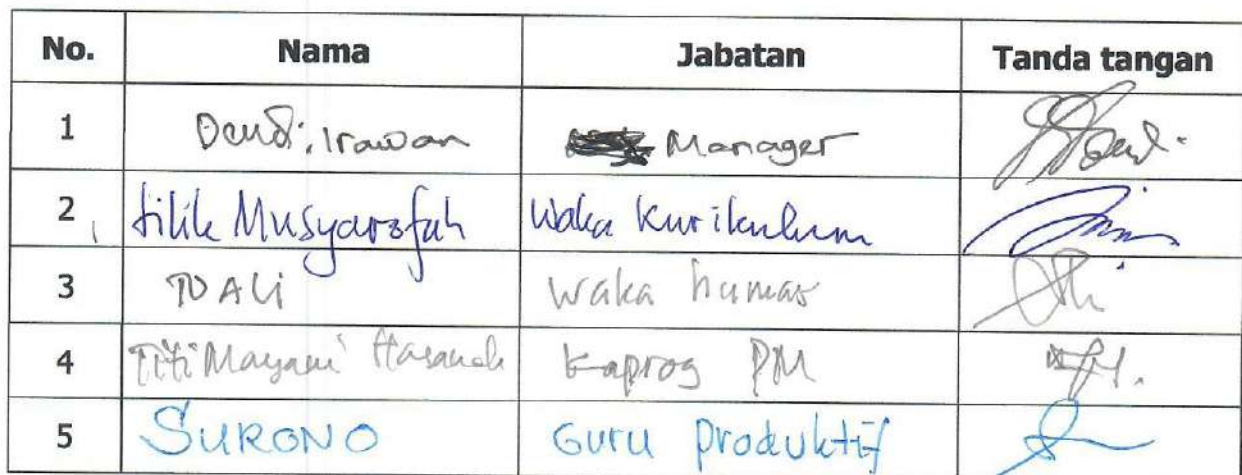 No. Nama Jabatan Tanda tangan
1 Dendi Irawan Manager
2 Titik Musyarofah Waka Kurikulum
3 Ali Waka humas
4 Titi Mayani Hasanah Kaprog PM
5 SURONO Guru Produktif